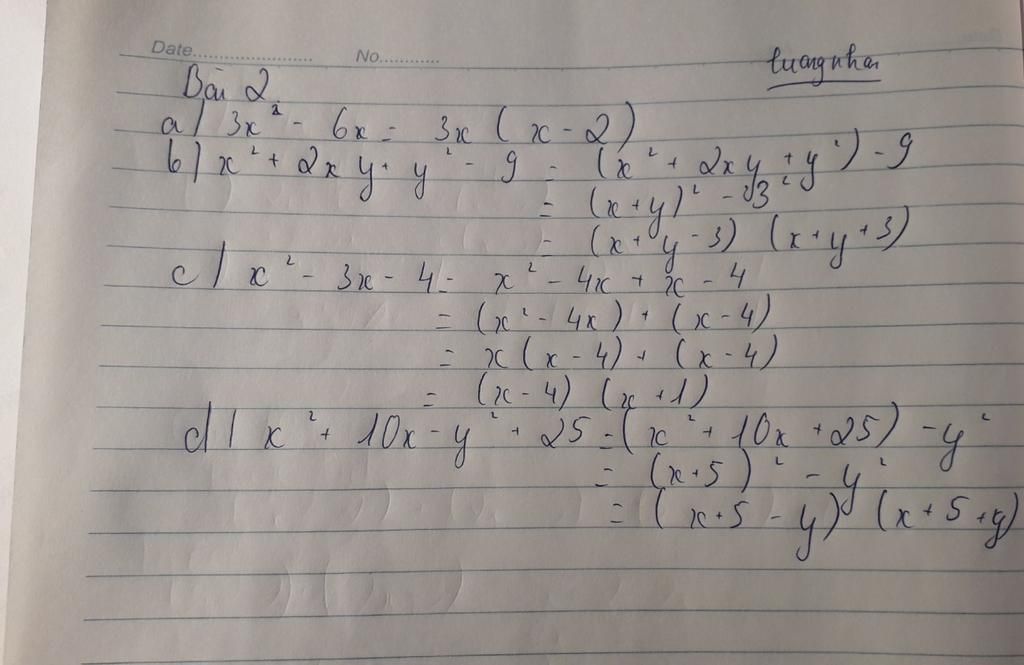 Date.................... No............
tuangnhan
Bài 2
a) 3x² - 6x = 3x (x - 2)
b) x² + 2xy + y² - 9 = (x² + 2xy + y²) - 9
= (x+y)² - 3²
= (x+y-3) (x+y+3)
c) x² - 3x - 4 = x² - 4x + x - 4
= (x² - 4x) + (x - 4)
= x(x - 4) + (x - 4)
= (x - 4) (x + 1)
d) x² + 10x - y² + 25 = (x² + 10x + 25) - y²
= (x+5)² - y²
= (x+5 - y) (x + 5 + y)